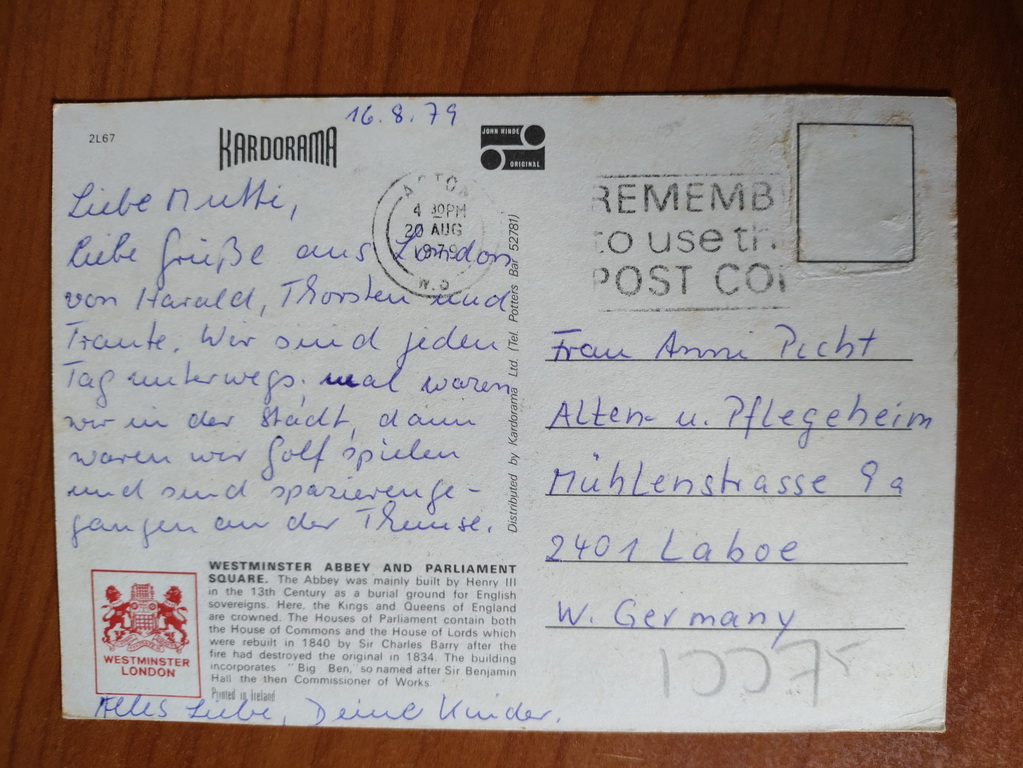 16.8.79
2L67
KARDORAMA
JOHN HINDE
ORIGINAL
Liebe Mutti,
liebe Grüße aus London
von Harald, Thorsten und
Traute. Wir sind jeden
Tag unterwegs, mal waren
wir in der Stadt, dann
waren wir Golf spielen
und sind spazierenge-
gangen an der Themse.
Alles Liebe, Deine Kinder.
ACTON
4 30PM
20 AUG
1979
W.3
REMEMB
to use th
POST CO
Distributed by Kardorama Ltd. (Tel. Potters Bar 52781)
Frau Anni Picht
Alten- u. Pflegeheim
Mühlenstrasse 9a
2401 Laboe
W. Germany
WESTMINSTER ABBEY AND PARLIAMENT
SQUARE. The Abbey was mainly built by Henry III
in the 13th Century as a burial ground for English
sovereigns. Here, the Kings and Queens of England
are crowned. The Houses of Parliament contain both
the House of Commons and the House of Lords which
were rebuilt in 1840 by Sir Charles Barry after the
fire had destroyed the original in 1834. The building
incorporates "Big Ben,' so named after Sir Benjamin
Hall the then Commissioner of Works
Printed in Ireland
WESTMINSTER
LONDON